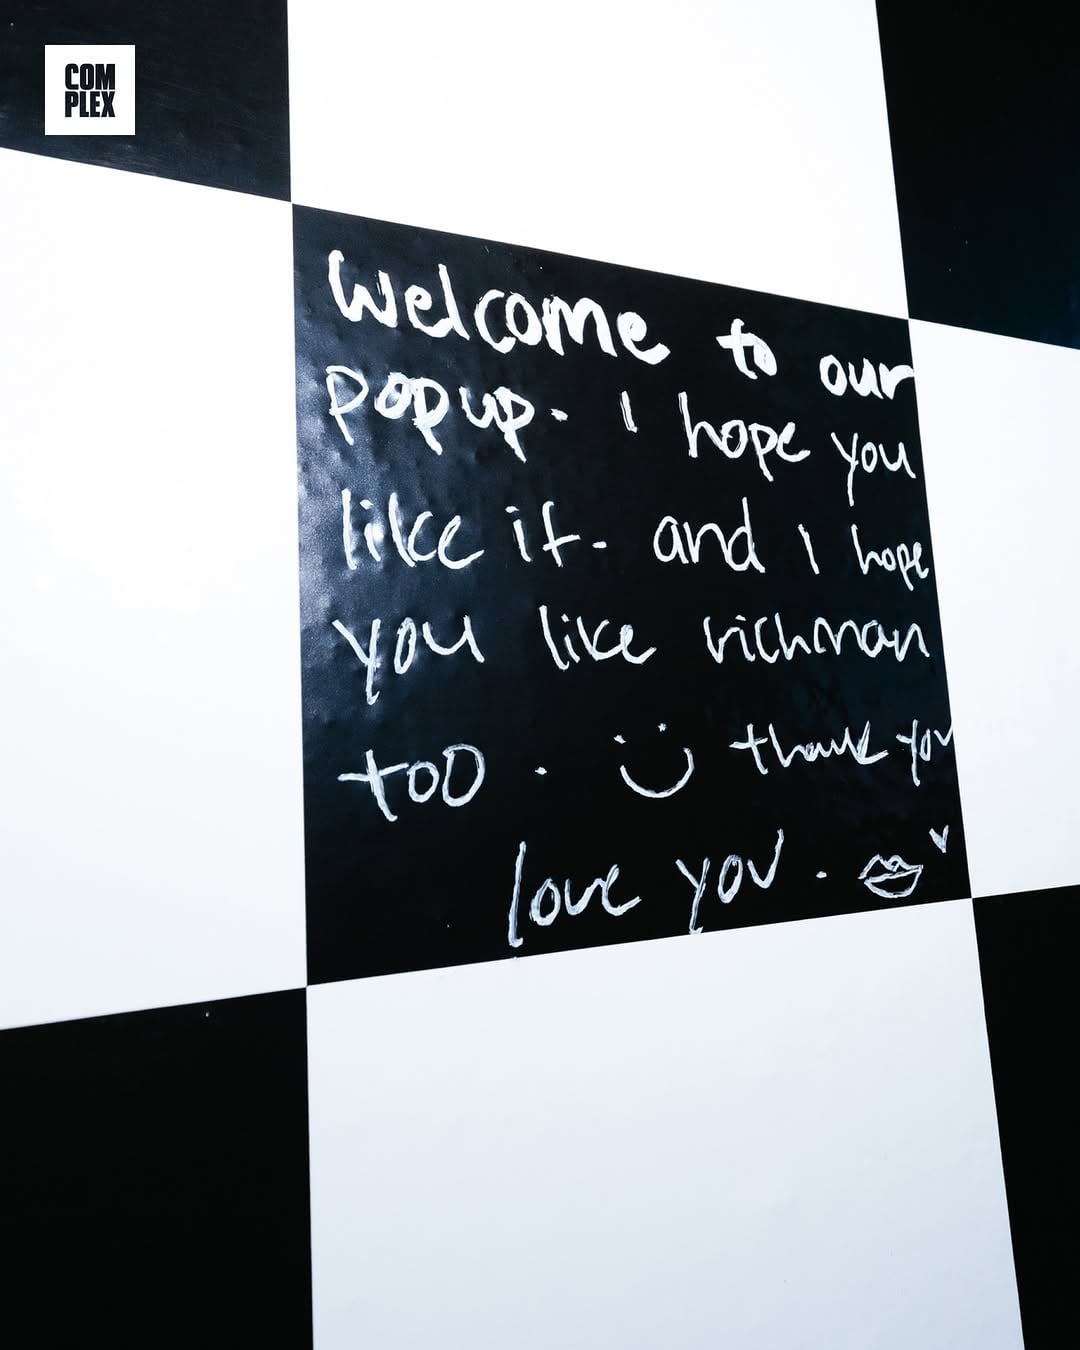 COM
PLEX
Welcome to our
popup. I hope you
like it. and I hope
you like richman
too. thank you
love you.